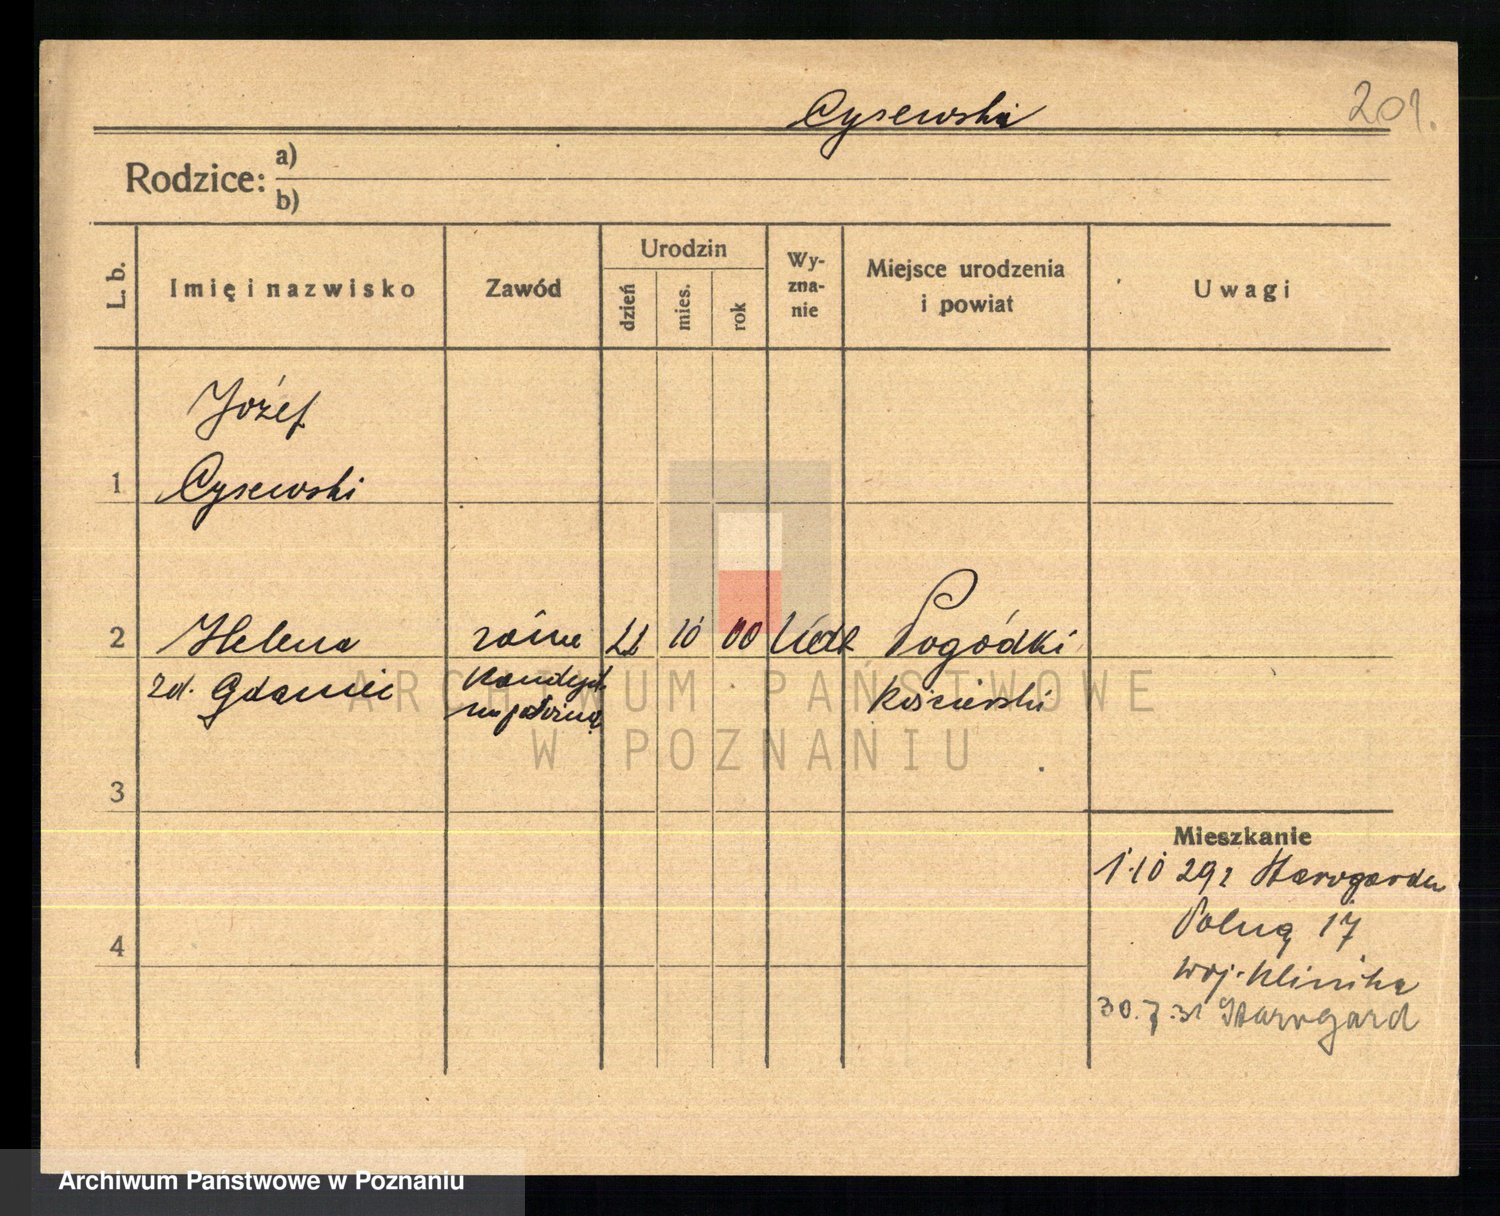 Cysewski
201.
Rodzice: a)
b)
L. b.
Imię i nazwisko
Zawód
Urodzin
dzień
mies.
rok
Wy-
zna-
nie
Miejsce urodzenia
i powiat
Uwagi
Józef
1 Cysewski
2 Helena 22 10 00 Pogódki
zd. Gdaniec Kandyd. kościerski
na położną
3
4
Mieszkanie
1.10 29 z Starogardu
Polną 17
woj. Klinika
30.7.31 Starogard
ARCHIWUM PAŃSTWOWE
W POZNANIU
Archiwum Państwowe w Poznaniu